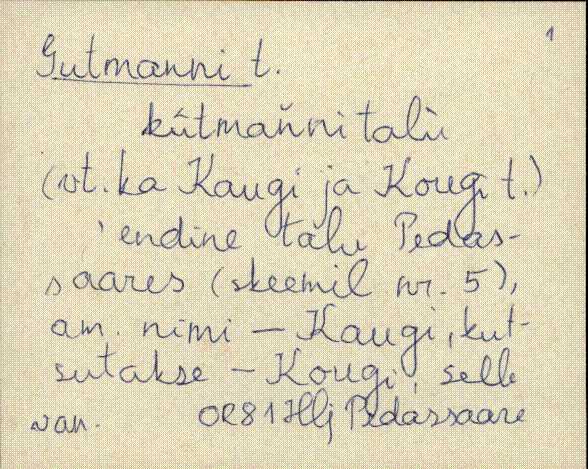 1
Gutmanni t.
kùtman̆ni talù
(vt. ka Kaugi ja Kougi t.)
'endine talu Pedas-
saares (skeemil nr. 5),
am. nimi – Kaugi, kut-
sutakse – Kougi, selle
van. Pedassaare